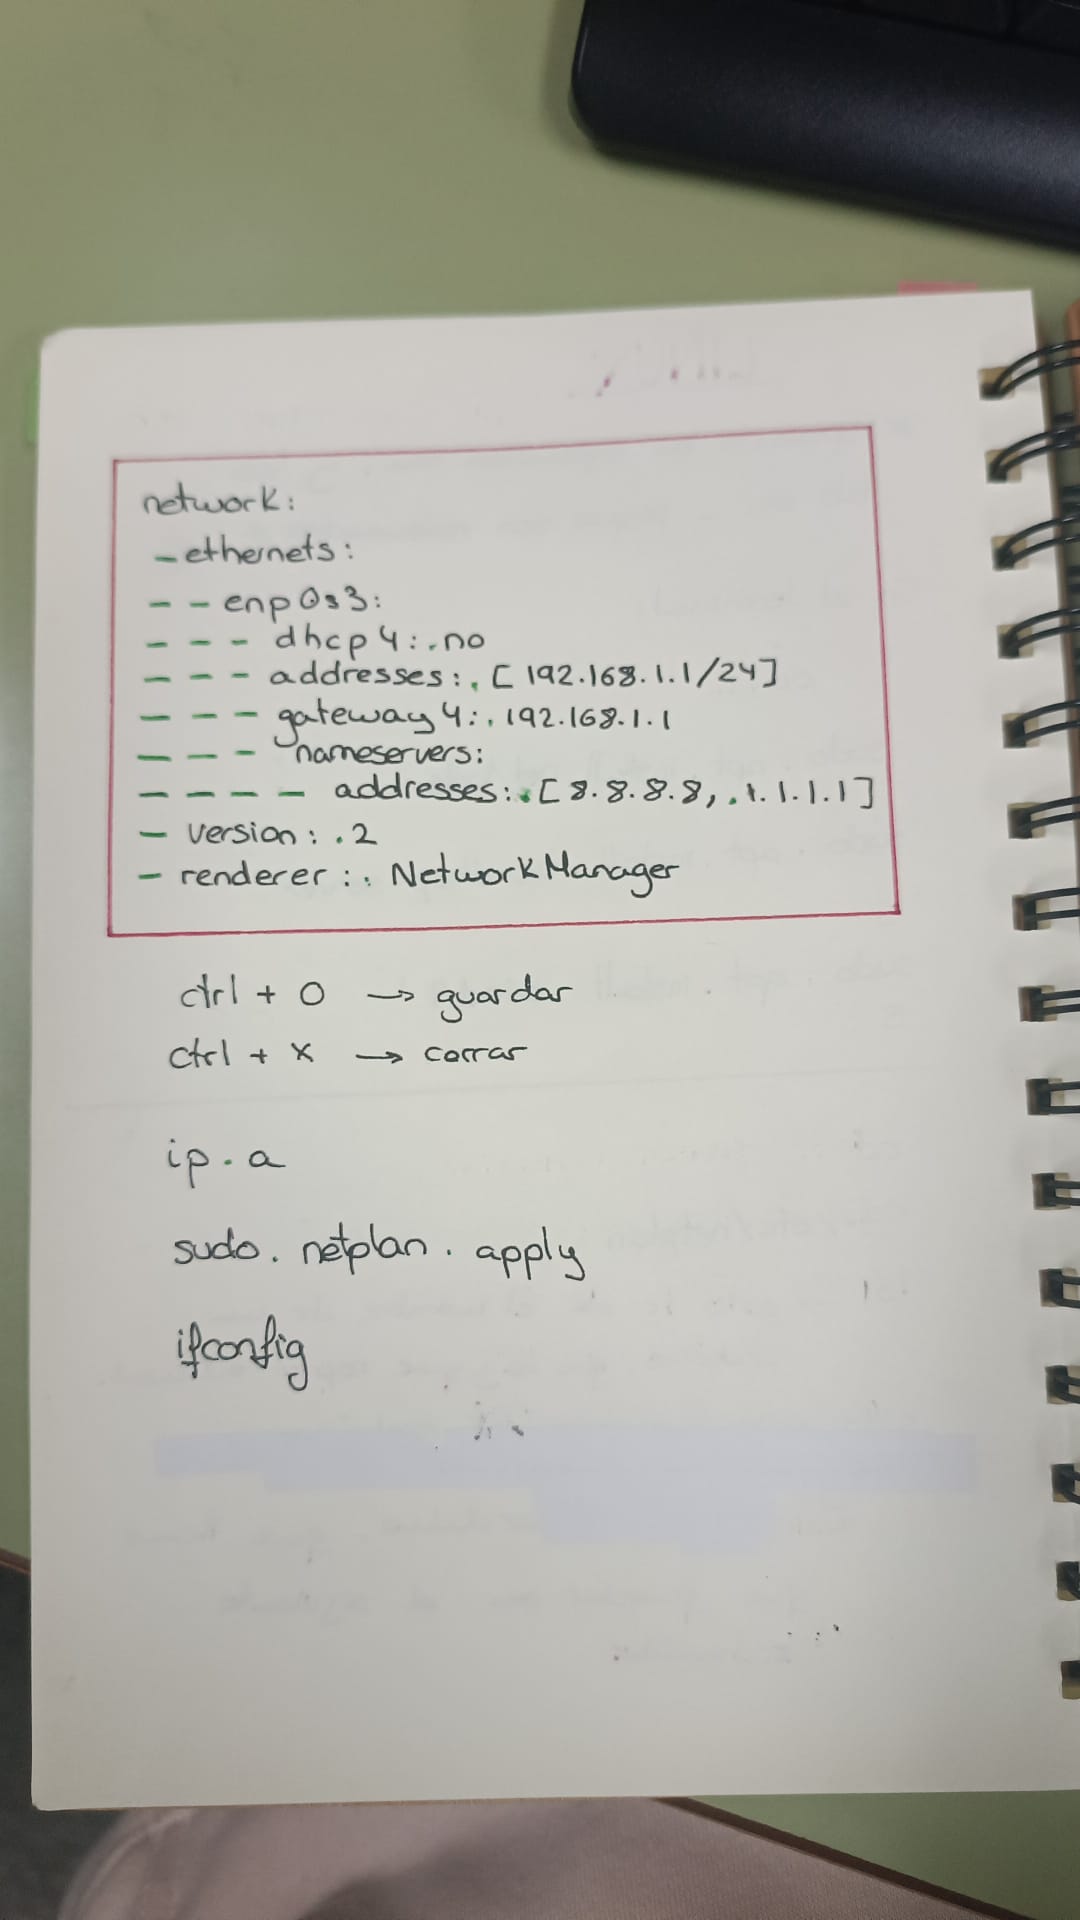 network:
- ethernets:
- - enp0s3:
- - - dhcp4:.no
- - - addresses:.[192.168.1.1/24]
- - - gateway4:.192.168.1.1
- - - nameservers:
- - - - addresses:.[8.8.8.8,.1.1.1.1]
- version:.2
- renderer:.NetworkManager
ctrl + O → guardar
ctrl + x → corrar
ip.a
sudo.netplan.apply
ifconfig